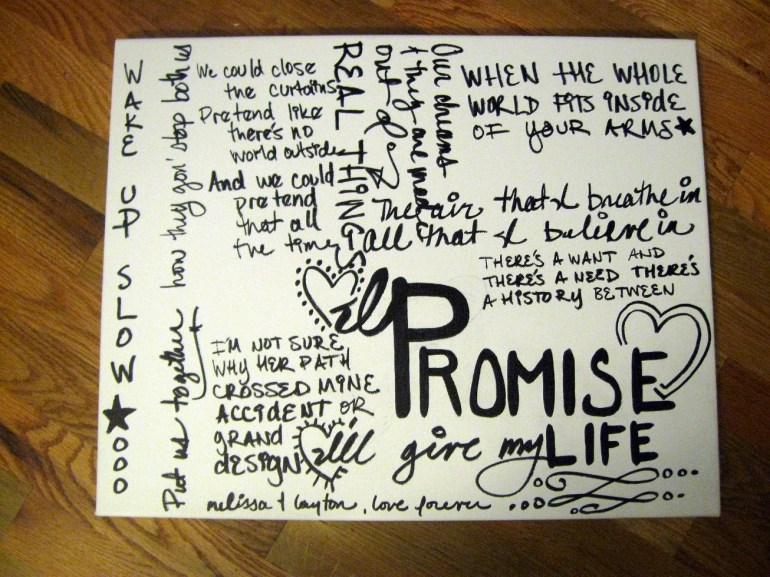 WAKE UP SLOW
Put us together how they gon' stop both us
We could close
the curtains
Pretend like
there's no
world outside
And we could
pretend
that all
the time
REAL THINGS
out of
& they are made
Our dreams
WHEN THE WHOLE
WORLD FITS INSIDE
OF YOUR ARMS
The air that I breathe in
all that I believe in
THERE'S A WANT AND
THERE'S A NEED THERE'S
A HISTORY BETWEEN
I PROMISE
I'll give my LIFE
I'M NOT SURE
WHY HER PATH
CROSSED MINE
ACCIDENT OR
GRAND
DESIGN
melissa + layton, love forever